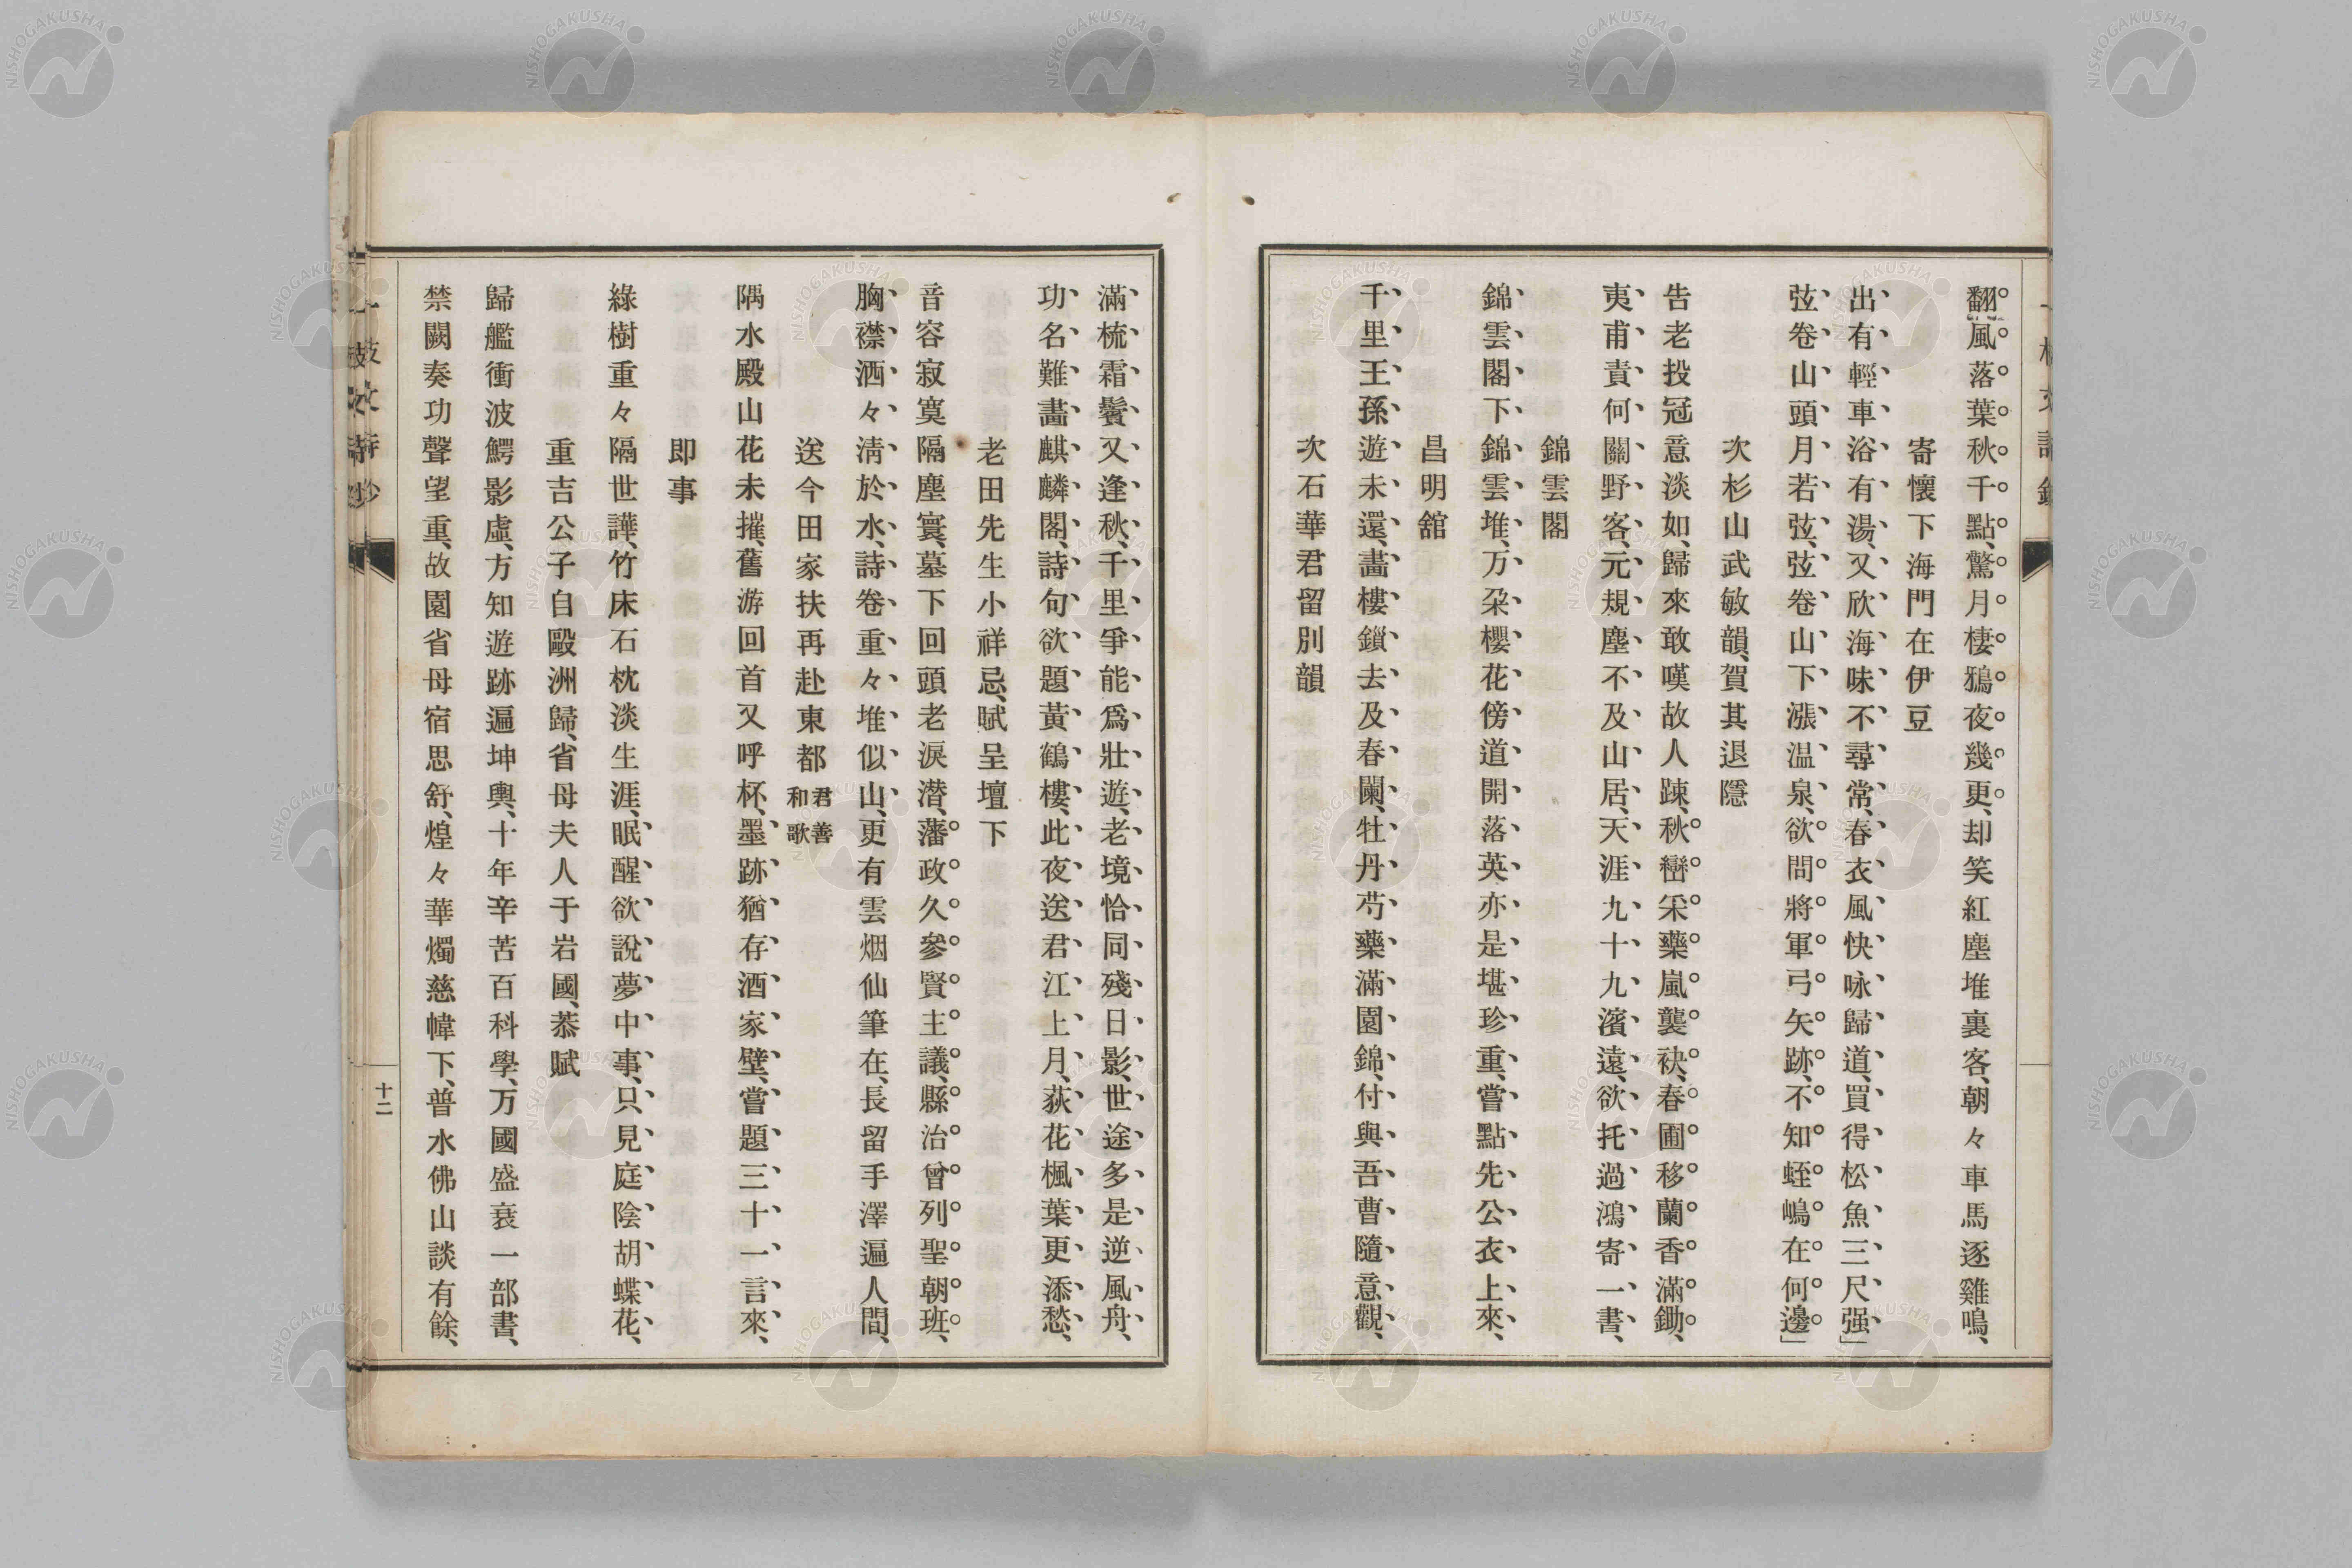 翻風落葉秋千點、驚月棲鴉夜幾更、却笑紅塵堆裏客、朝々車馬逐雞鳴、
寄懷下海門在伊豆
出有輕車浴有湯、又欣海味不尋常、春衣風快咏歸道、買得松魚三尺强」
弦卷山頭月若弦、弦卷山下漲温泉、欲問將軍弓矢跡、不知蛭嶋在何邊」
次杉山武敏韻、賀其退隱
告老投冠意淡如、歸來敢嘆故人踈、秋巒采藥嵐襲袂、春圃移蘭香滿鋤、
夷甫責何關野客、元規塵不及山居、天涯九十九濱遠、欲托過鴻寄一書、
錦雲閣
錦雲閣下錦雲堆、万朶櫻花傍道開、落英亦是堪珍重、嘗點先公衣上來、
昌明舘
千里王孫遊未還、畫樓鎖去及春闌、牡丹芍藥滿園錦、付與吾曹隨意觀、
次石華君留別韻
滿梳霜鬢又逢秋、千里爭能爲壯遊、老境恰同殘日影、世途多是逆風舟、
功名難畵麒麟閣、詩句欲題黃鶴樓、此夜送君江上月、荻花楓葉更添愁、
老田先生小祥忌、賦呈壇下
音容寂寞隔塵寰、墓下回頭老淚潸、藩政久參賢主議、縣治曾列聖朝班、
胸襟洒々淸於水、詩卷重々堆似山、更有雲烟仙筆在、長留手澤遍人間、
送今田家扶再赴東都 君善和歌
隅水殿山花未摧、舊游回首又呼杯、墨跡猶存酒家壁、嘗題三十一言來、
即事
綠樹重々隔世譁、竹床石枕淡生涯、眠醒欲說夢中事、只見庭陰胡蝶花、
重吉公子自毆洲歸、省母夫人于岩國、恭賦
歸艦衝波鰐影虛、方知遊跡遍坤輿、十年辛苦百科學、万國盛衰一部書、
禁闕奏功聲望重、故園省母宿思舒、煌々華燭慈幃下、普水佛山談有餘、
十二
NISHOGAKUSHA